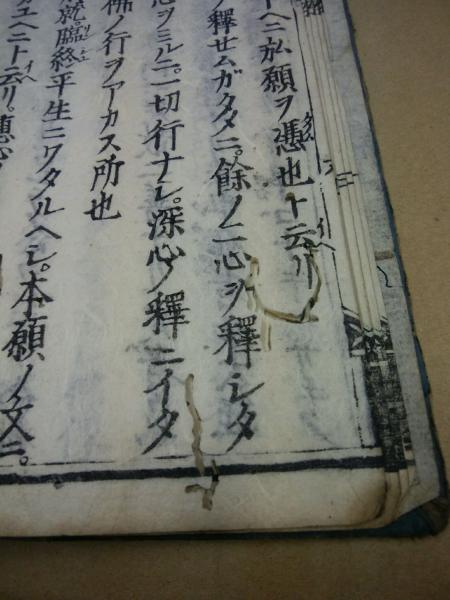 ヘニ弘願ヲ憑也ト云リ
釋セムガタメニ。餘ノ二心ヲ釋シタ
心ヲミルニ。一切行ナレ。深心ノ釋ニイタ
ノ行ヲアカス所也
臨終平生ニワタルヘシ。本願ノ文ニ。
ユヘニト云リ。惠心